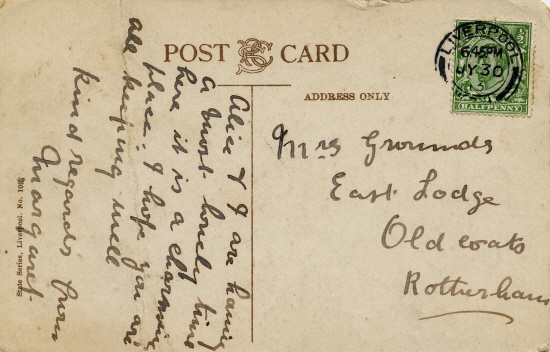 POST CARD
ADDRESS ONLY
LIVERPOOL
6.45PM
JY 30
½
HALFPENNY
Alice & I are having
a most lovely time
here it is a charming
place: I hope you are
all keeping well
Kind regards from
Margaret.
Mrs Grounds
East Lodge
Oldcoats
Rotherham
State Series, Liverpool. No.